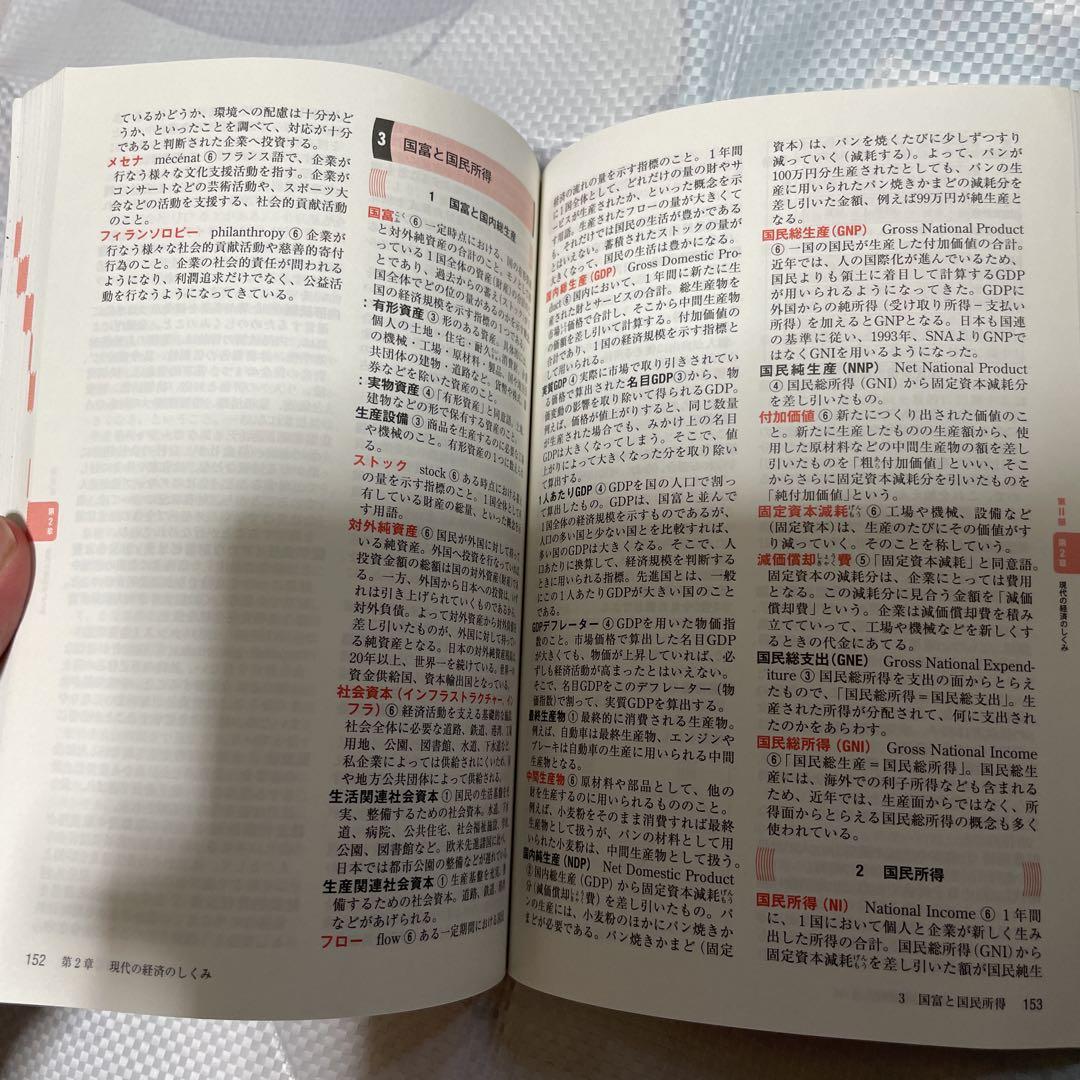 ているかどうか、環境への配慮は十分かど
うか、といったことを調べて、対応が十分
であると判断された企業へ投資する。
メセナ mécénat⑥フランス語で、企業が
行なう様々な文化支援活動を指す。企業が
コンサートなどの芸術活動や、スポーツ大
会などの活動を支援する、社会的貢献活動
のこと。
フィランソロピー philanthropy⑥企業が
行なう様々な社会的貢献活動や慈善的寄付
行為のこと。企業の社会的責任が問われる
ようになり、利潤追求だけでなく、公益活
動を行なうようになってきている。
3 国富と国民所得
1 国富と国内総生産
国富こくふ⑥一定時点における、国の有形資産
と対外純資産の合計のこと。
っている1国全体の資産(財産)の
とであり、過去からの蓄え(ストック
国全体でどの位の量があるのかを示す
国の経済規模を示す指標の1つである
:有形資産③形のある資産。具体的には
個人の土地・住宅・耐久
の機械・工場・原材料・製品、国や
共団体の建物・道路など。貨幣や株式
券などを除いた資産のこと。
:実物資産④「有形資産」と同意語。土地
建物などの形で保有する資産のこと。
生産設備③商品を生産するのに必要な工場
や機械のこと。有形資産の1つに数えられ
る。
ストック stock⑥ある時点における
の量を示す指標のこと。1国全体として
有している財産の総量、といった概念を
す用語。
対外純資産⑥国民が外国に対して持って
いる純資産。外国へ投資を行なっていれば
投資金額の総額は国の対外資産(財産)であ
る。一方、外国から日本への投資は、いず
れは引き上げられていくものであるから、
対外負債。よって対外資産から対外負債を
差し引いたものが、外国に対して持ってい
る純資産となる。日本の対外純資産残高は
20年以上、世界一を続けている。世界一の
資金供給国、資本輸出国となっている。
社会資本(インフラストラクチャー、イン
フラ)⑥経済活動を支える基礎的な施設。
社会全体に必要な道路、鉄道、港湾、工業
用地、公園、図書館、水道、下水道など。
私企業によっては供給されにくいため、国
や地方公共団体によって供給される。
生活関連社会資本①国民の生活基盤を充
実、整備するための社会資本。水道、下水
道、病院、公共住宅、社会福祉施設、学校、
公園、図書館など。欧米先進諸国に比べ、
日本では都市公園の整備などが遅れている。
生産関連社会資本①生産基盤を充実、整
備するための社会資本。道路、鉄道、港湾
などがあげられる。
フロー flow⑥ある一定期間における経済
152 第2章 現代の経済のしくみ
第2章
経済の流れの量を示す指標のこと。1年間
に1国全体として、どれだけの量の財やサ
ービスが生産されたか、といった概念を示
す用語。生産されたフローの量が大きくて
も、それだけでは国民の生活が豊かである
とはいえない。蓄積されたストックの量が
大きくなって、国民の生活は豊かになる。
国内総生産(GDP) Gross Domestic Pro-
duct⑥国内において、1年間に新たに生
産された財とサービスの合計。総生産物を
市場価格で合計し、そこから中間生産物
の価額を差し引いて計算する。付加価値の
合計であり、1国の経済規模を示す指標と
して用いられる。
実質GDP④実際に市場で取り引きされてい
る価格で算出された名目GDP③から、物
価変動の影響を取り除いて得られるGDP。
例えば、価格が値上がりすると、同じ数量
が生産された場合でも、みかけ上の名目
GDPは大きくなってしまう。そこで、値
上がりによって大きくなった分を取り除い
て算出する。
1人あたりGDP④GDPを国の人口で割っ
て算出したもの。GDPは、国富と並んで
1国全体の経済規模を示すものであるが、
人口の多い国と少ない国とを比較すれば、
多い国のGDPは大きくなる。そこで、人
口あたりに換算して、経済規模を判断する
ときに用いられる指標。先進国とは、一般
にこの1人あたりGDPが大きい国のこと
である。
GDPデフレーター④GDPを用いた物価指
数のこと。市場価格で算出した名目GDP
が大きくても、物価が上昇していれば、必
ずしも経済活動が高まったとはいえない。
そこで、名目GDPをこのデフレーター(物
価指数)で割って、実質GDPを算出する。
最終生産物①最終的に消費される生産物。
例えば、自動車は最終生産物、エンジンや
ブレーキは自動車の生産に用いられる中間
生産物となる。
中間生産物⑥原材料や部品として、他の
財を生産するのに用いられるもののこと。
例えば、小麦粉をそのまま消費すれば最終
生産物として扱うが、パンの材料として用
いられた小麦粉は、中間生産物として扱う。
国内純生産(NDP) Net Domestic Product
②国内総生産(GDP)から固定資本減耗げんもう
分(減価償却しょうきゃく費)を差し引いたもの。パ
ンの生産には、小麦粉のほかにパン焼きか
まどが必要である。パン焼きかまど(固定
資本)は、パンを焼くたびに少しずつすり
減っていく(減耗する)。よって、パンが
100万円分生産されたとしても、パンの生
産に用いられたパン焼きかまどの減耗分を
差し引いた金額、例えば99万円が純生産と
なる。
国民総生産(GNP) Gross National Product
⑥一国の国民が生産した付加価値の合計。
近年では、人の国際化が進んでいるため、
国民よりも領土に着目して計算するGDP
が用いられるようになってきた。GDPに
外国からの純所得(受け取り所得−支払い
所得)を加えるとGNPとなる。日本も国連
の基準に従い、1993年、SNAよりGNPで
はなくGNIを用いるようになった。
国民純生産(NNP) Net National Product
④国民総所得(GNI)から固定資本減耗分
を差し引いたもの。
付加価値⑥新たにつくり出された価値のこ
と。新たに生産したものの生産額から、使
用した原材料などの中間生産物の額を差し
引いたものを「粗あら付加価値」といい、そこ
からさらに固定資本減耗分を引いたものを
「純付加価値」という。
固定資本減耗げんもう⑥工場や機械、設備など
(固定資本)は、生産のたびにその価値がす
り減っていく。そのことを称していう。
減価償却しょうきゃく費⑤「固定資本減耗」と同意語。
固定資本の減耗分は、企業にとっては費用
となる。この減耗分に見合う金額を「減価
償却費」という。企業は減価償却費を積み
立てていって、工場や機械などを新しくす
るときの代金にあてる。
国民総支出(GNE) Gross National Expend-
iture③国民総所得を支出の面からとらえ
たもので、「国民総所得＝国民総支出」。生
産された所得が分配されて、何に支出され
たのかをあらわす。
国民総所得(GNI) Gross National Income
⑥「国民総生産＝国民総所得」。国民総生
産には、海外での利子所得なども含まれる
ため、近年では、生産面からではなく、所
得面からとらえる国民総所得の概念も多く
使われている。
2 国民所得
国民所得(NI) National Income⑥1年間
に、1国において個人と企業が新しく生み
出した所得の合計。国民総所得(GNI)から
固定資本減耗げんもうを差し引いた額が国民純生
3 国富と国民所得 153
第II部 第2章 現代の経済のしくみ